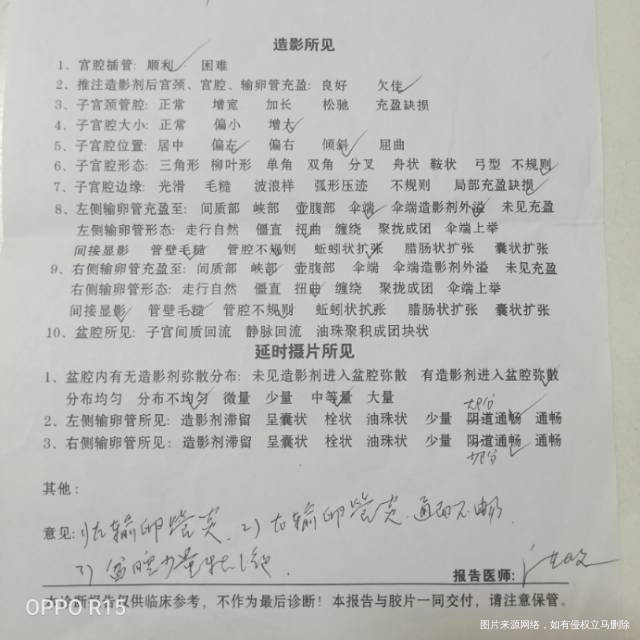 造影所见
1、宫腔插管: 顺利 困难
2、推注造影剂后宫颈、宫腔、输卵管充盈: 良好 欠佳
3、子宫颈管腔: 正常 增宽 加长 松驰 充盈缺损
4、子宫腔大小: 正常 偏小 增大
5、子宫腔位置: 居中 偏左 偏右 倾斜 屈曲
6、子宫腔形态: 三角形 柳叶形 单角 双角 分叉 舟状 鞍状 弓型 不规则
7、子宫腔边缘: 光滑 毛糙 波浪样 弧形压迹 不规则 局部充盈缺损
8、左侧输卵管充盈至: 间质部 峡部 壶腹部 伞端 伞端造影剂外溢 未见充盈
左侧输卵管形态: 走行自然 僵直 扭曲 缠绕 聚拢成团 伞端上举
间接显影 管壁毛糙 管腔不规则 蚯蚓状扩张 腊肠状扩张 囊状扩张
9、右侧输卵管充盈至: 间质部 峡部 壶腹部 伞端 伞端造影剂外溢 未见充盈
右侧输卵管形态: 走行自然 僵直 扭曲 缠绕 聚拢成团 伞端上举
间接显影 管壁毛糙 管腔不规则 蚯蚓状扩张 腊肠状扩张 囊状扩张
10、盆腔所见: 子宫间质回流 静脉回流 油珠聚积成团块状
延时摄片所见
1、盆腔内有无造影剂弥散分布: 未见造影剂进入盆腔弥散 有造影剂进入盆腔弥散
分布均匀 分布不均匀 微量 少量 中等量 大量
2、左侧输卵管所见: 造影剂滞留 呈囊状 栓状 油珠状 少量 阴道通畅 通畅
3、右侧输卵管所见: 造影剂滞留 呈囊状 栓状 油珠状 少量 阴道通畅 通畅
其他:
意见: 输卵管炎 2) 右输卵管炎 通而不畅.
3) 盆腔少量
报告医师:
本诊断报告仅供临床参考, 不作为最后诊断! 本报告与胶片一同交付, 请注意保管。
OPPO R15
图片来源网络,如有侵权立马删除